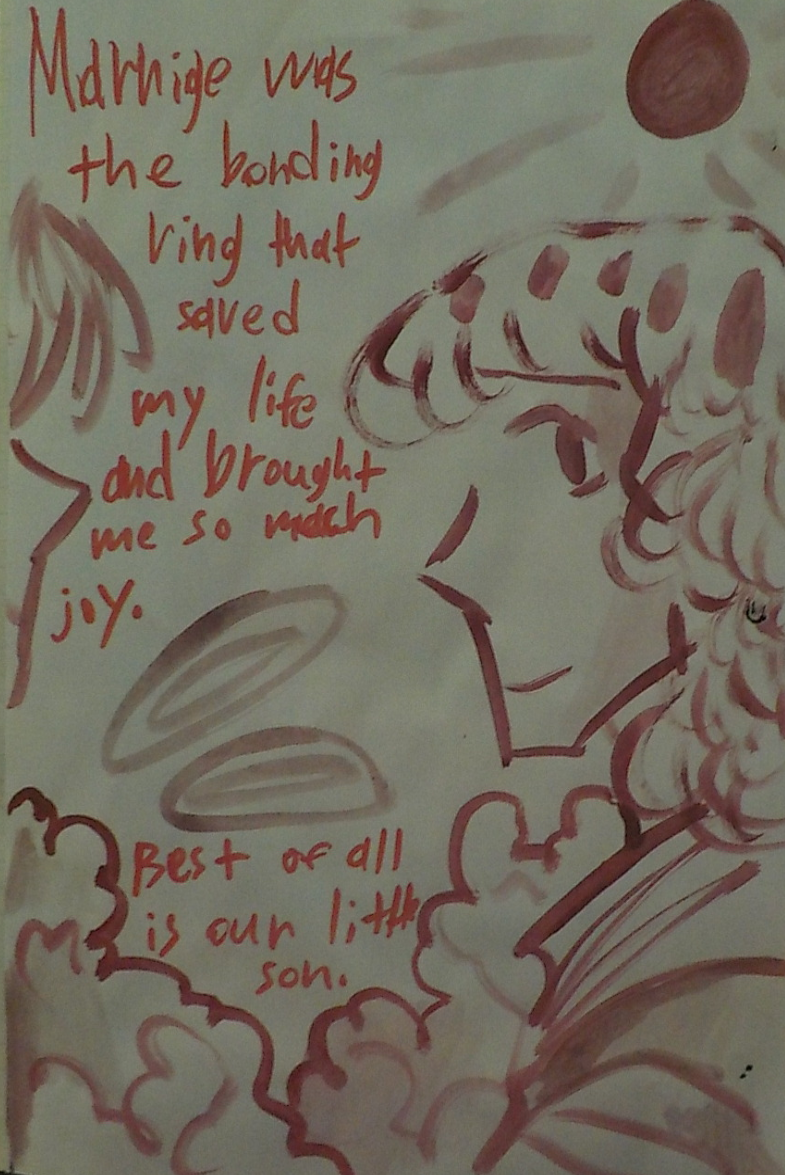 Marriige was
the bonding
ring that
saved
my life
and brought
me so much
joy.
Best of all
is our little
son.